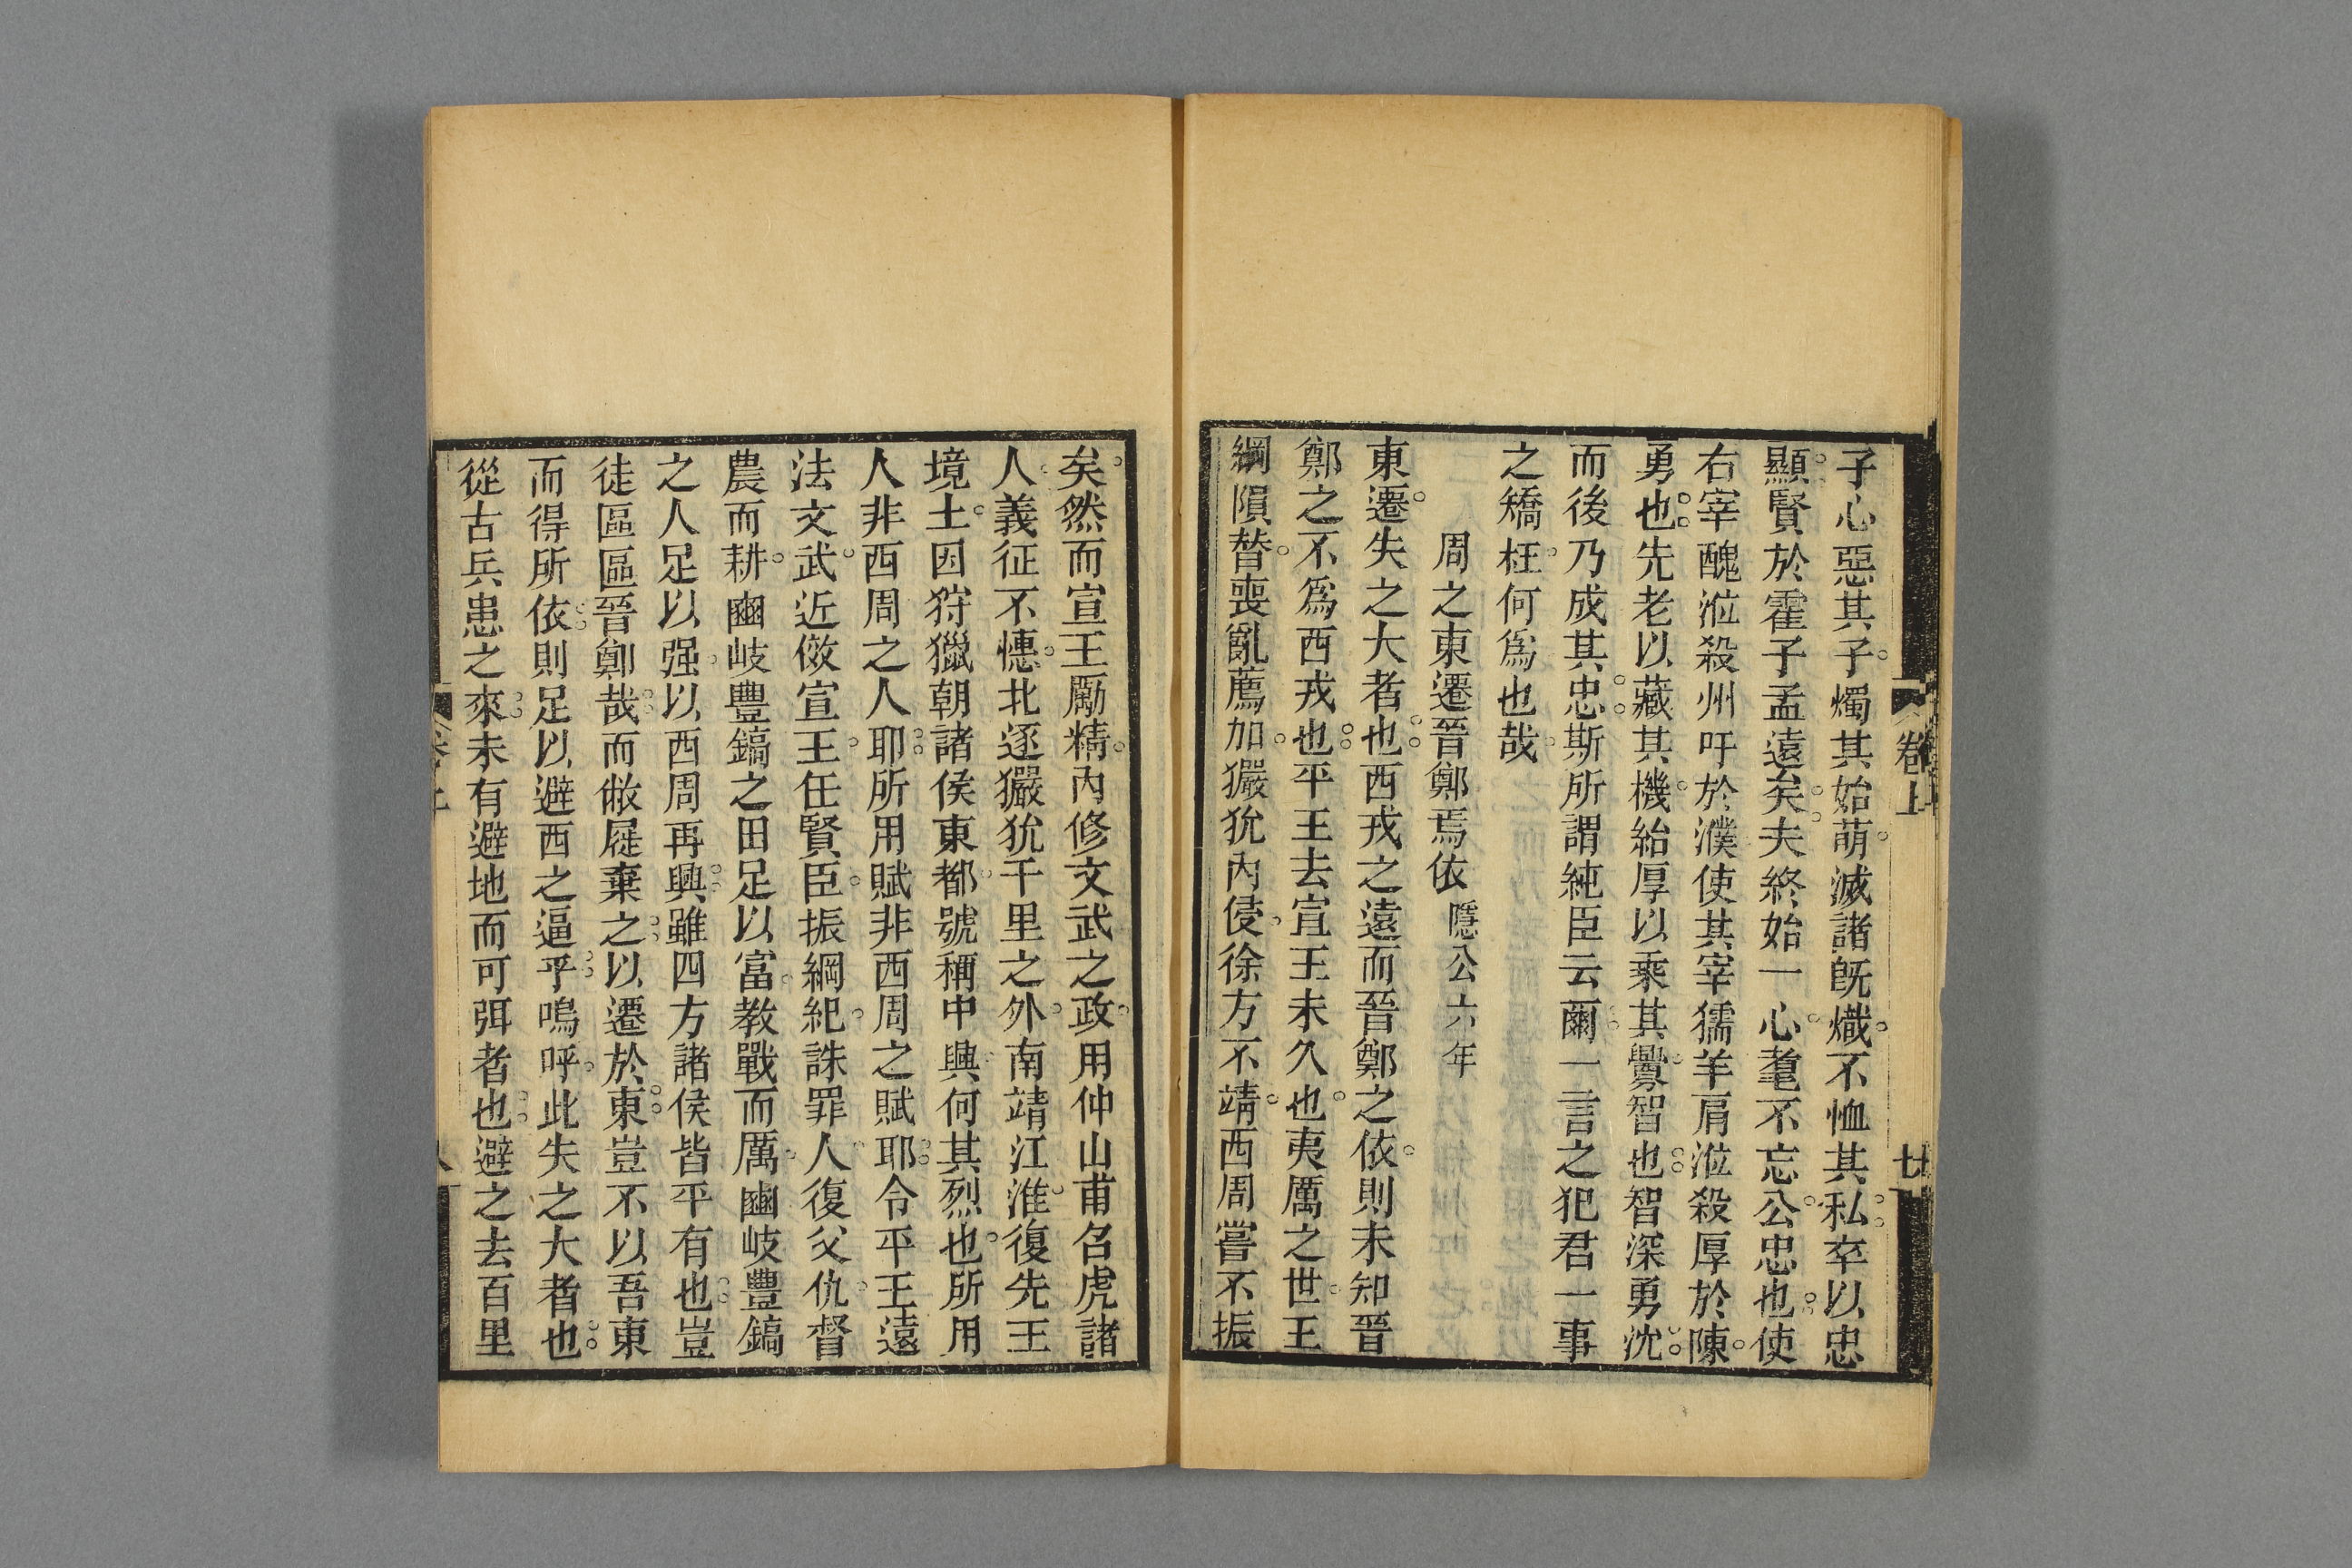 子心惡其子燭其始萌滅諸旣熾不恤其私卒以忠
顯賢於霍子孟遠矣夫終始一心耄不忘公忠也使
右宰醜涖殺州吁於濮使其宰獳羊肩涖殺厚於陳
勇也先老以藏其機紿厚以乘其釁智也智深勇沈
而後乃成其忠斯所謂純臣云爾一言之犯君一事
之矯枉何爲也哉
周之東遷晉鄭焉依隱公六年
東遷失之大者也西戎之遠而晉鄭之依則未知晉
鄭之不爲西戎也平王去宣王未久也夷厲之世王
綱隕替喪亂薦加玁狁內侵徐方不靖西周嘗不振
矣然而宣王勵精內修文武之政用仲山甫召虎諸
人義征不憓北逐玁狁千里之外南靖江淮復先王
境土因狩獵朝諸侯東都號稱中興何其烈也所用
人非西周之人耶所用賦非西周之賦耶令平王遠
法文武近傚宣王任賢臣振綱紀誅罪人復父仇督
農而耕豳岐豐鎬之田足以富教戰而厲豳岐豐鎬
之人足以强以西周再興雖四方諸侯皆平有也豈
徒區區晉鄭哉而敝屣棄之以遷於東豈不以吾東
而得所依則足以避西之逼乎嗚呼此失之大者也
從古兵患之來未有避地而可弭者也避之去百里
卷上
廿